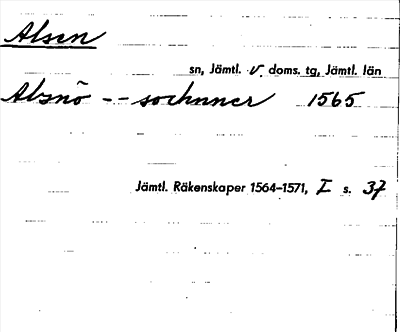 Alsen
sn, Jämtl. v. doms. tg, Jämtl. län
Alsnö -- sochnner 1565
Jämtl. Räkenskaper 1564-1571, I s. 37